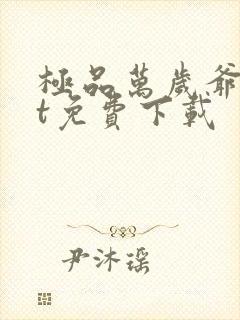 極品萬歲爺
t免費下載
尹沐瑶